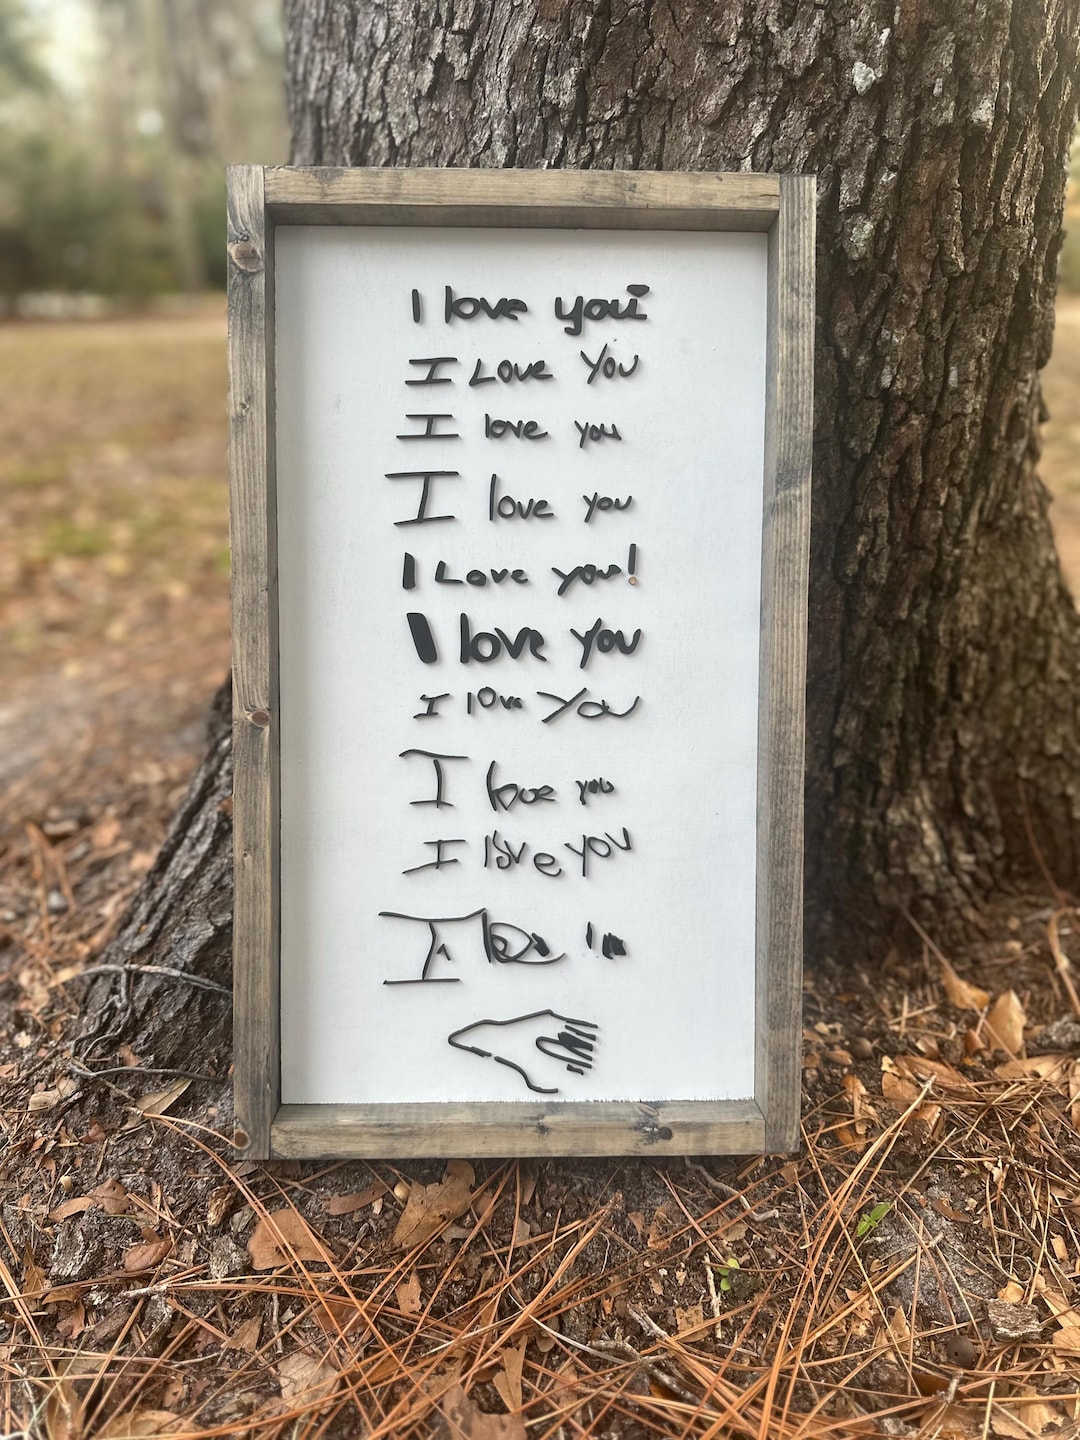 I love you
I Love You
I love you
I love you
I Love you!
I love you
I love You
I love you
I love you
I